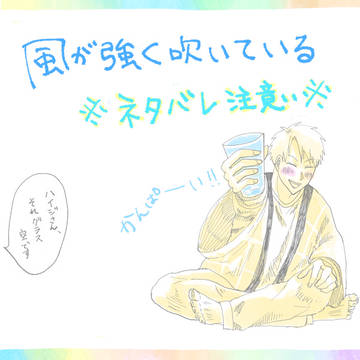 風が強く吹いている
※ネタバレ注意い※
かんぱーい!!
ハイジさん、
それグラス
空です